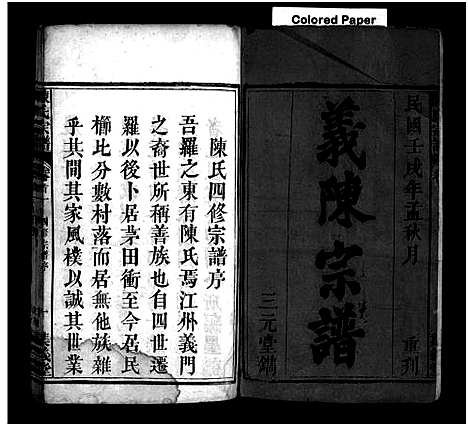 Colored Paper
民國壬戌年孟秋月
義陳宗譜
重刊
三元堂鐫
陳氏四修宗譜序
吾羅之東有陳氏焉江州義門
之裔世所稱善族也自四世遷
羅以後卜居茅田衝至今居民
櫛比分數村落而居無他族雜
乎其間其家風樸以誠其世業